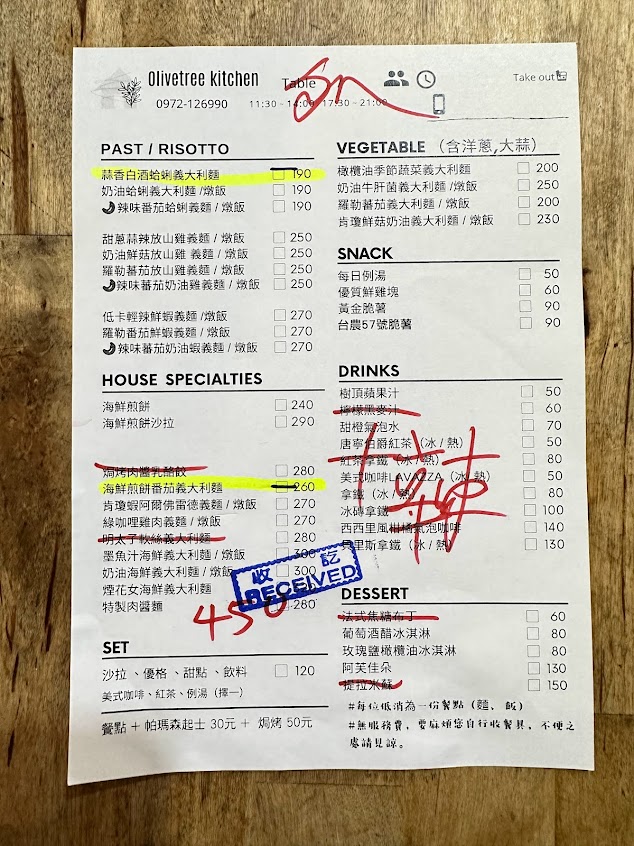 Olivetree kitchen
Table
Take out
0972-126990
11:30 – 14:00 17:30 – 21:00
PAST / RISOTTO
蒜香白酒蛤蜊義大利麵 190
奶油蛤蜊義大利麵 /燉飯 190
辣味番茄蛤蜊義麵 / 燉飯 190
甜蔥蒜辣放山雞義麵 / 燉飯 250
奶油鮮菇放山雞 義麵 / 燉飯 250
羅勒蕃茄放山雞義麵 / 燉飯 250
辣味蕃茄奶油雞義麵 / 燉飯 250
低卡輕辣鮮蝦義麵 / 燉飯 270
羅勒番茄鮮蝦義麵 / 燉飯 270
辣味蕃茄奶油蝦義麵 / 燉飯 270
HOUSE SPECIALTIES
海鮮煎餅 240
海鮮煎餅沙拉 290
焗烤肉醬乳酪餃 280
海鮮煎餅番茄義大利麵 260
肯瓊蝦阿爾佛雷德義麵 / 燉飯 270
綠咖哩雞肉義麵 / 燉飯 270
明太子軟絲義大利麵 280
墨魚汁海鮮義大利麵 / 燉飯 300
奶油海鮮義大利麵 / 燉飯 300
煙花女海鮮義大利麵
特製肉醬麵 280
收訖
RECEIVED
450
SET
沙拉 、優格 、甜點 、飲料 120
美式咖啡、紅茶、例湯（擇一）
餐點 + 帕瑪森起士 30元 + 焗烤 50元
VEGETABLE （含洋蔥,大蒜）
橄欖油季節蔬菜義大利麵 200
奶油牛肝菌義大利麵 / 燉飯 200
羅勒蕃茄義大利麵 / 燉飯 200
肯瓊鮮菇奶油義大利麵 / 燉飯 230
SNACK
每日例湯 50
優質鮮雞塊 60
黃金脆薯 90
台農57號脆薯 90
DRINKS
樹頂蘋果汁 50
檸檬黑麥汁 60
甜橙氣泡水 70
唐寧伯爵紅茶（冰 / 熱） 50
紅茶拿鐵（冰 / 熱） 80
美式咖啡LAVAZZA（冰 / 熱） 50
拿鐵（冰 / 熱） 80
冰磚拿鐵 100
西西里風柑橘氣泡咖啡 140
貝里斯拿鐵（冰 / 熱） 130
DESSERT
法式焦糖布丁 60
葡萄酒醋冰淇淋 80
玫瑰鹽橄欖油冰淇淋 80
阿芙佳朵 130
提拉米蘇 150
#每位低消為一份餐點（麵、飯）
#無服務費，要麻煩您自行收餐具，不便之
處請見諒。